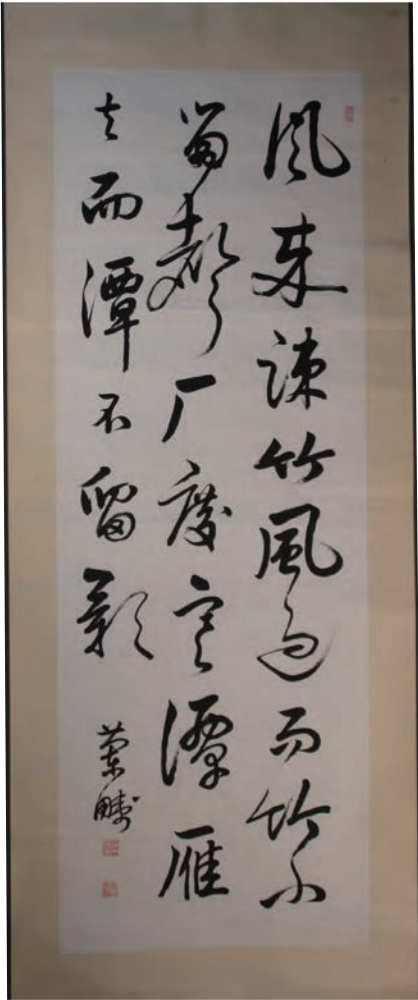 風来疎竹風過而竹不
留聲厂度寒潭雁
去而潭不留影
蘭疇